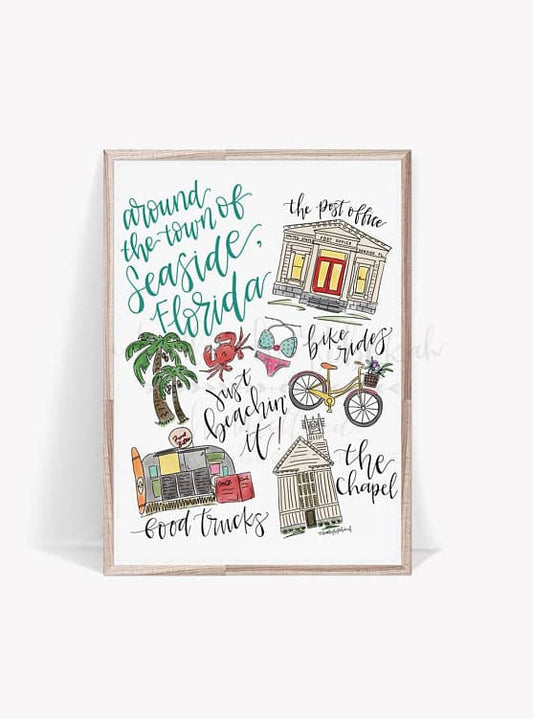 around
the town of
Seaside,
Florida
the post office
UNITED STATES POST OFFICE
bike
rides
just
beachin'
it!
food trucks
the
Chapel